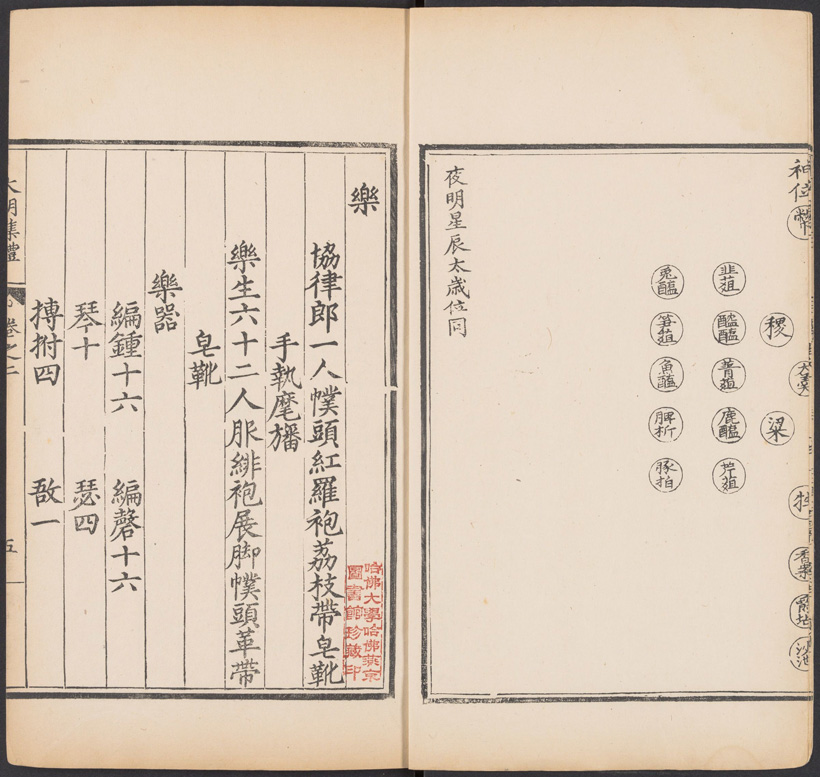 神位 幣 大羹 牲 香案 爵坫 沙池
稷 粱
韭葅 醓醢 菁葅 鹿醢 芹葅
兔醢 笋葅 魚醢 脾析 豚拍
夜明星辰太歲位同
樂
哈佛大學哈佛燕京
圖書館珍藏印
協律郎一人幞頭紅羅袍荔枝帶皂靴
手執麾旛
樂生六十二人服緋袍展脚幞頭革帶
皂靴
樂器
編鍾十六 編磬十六
琴十 瑟四
搏拊四 敔一
大明集禮 卷之二 五